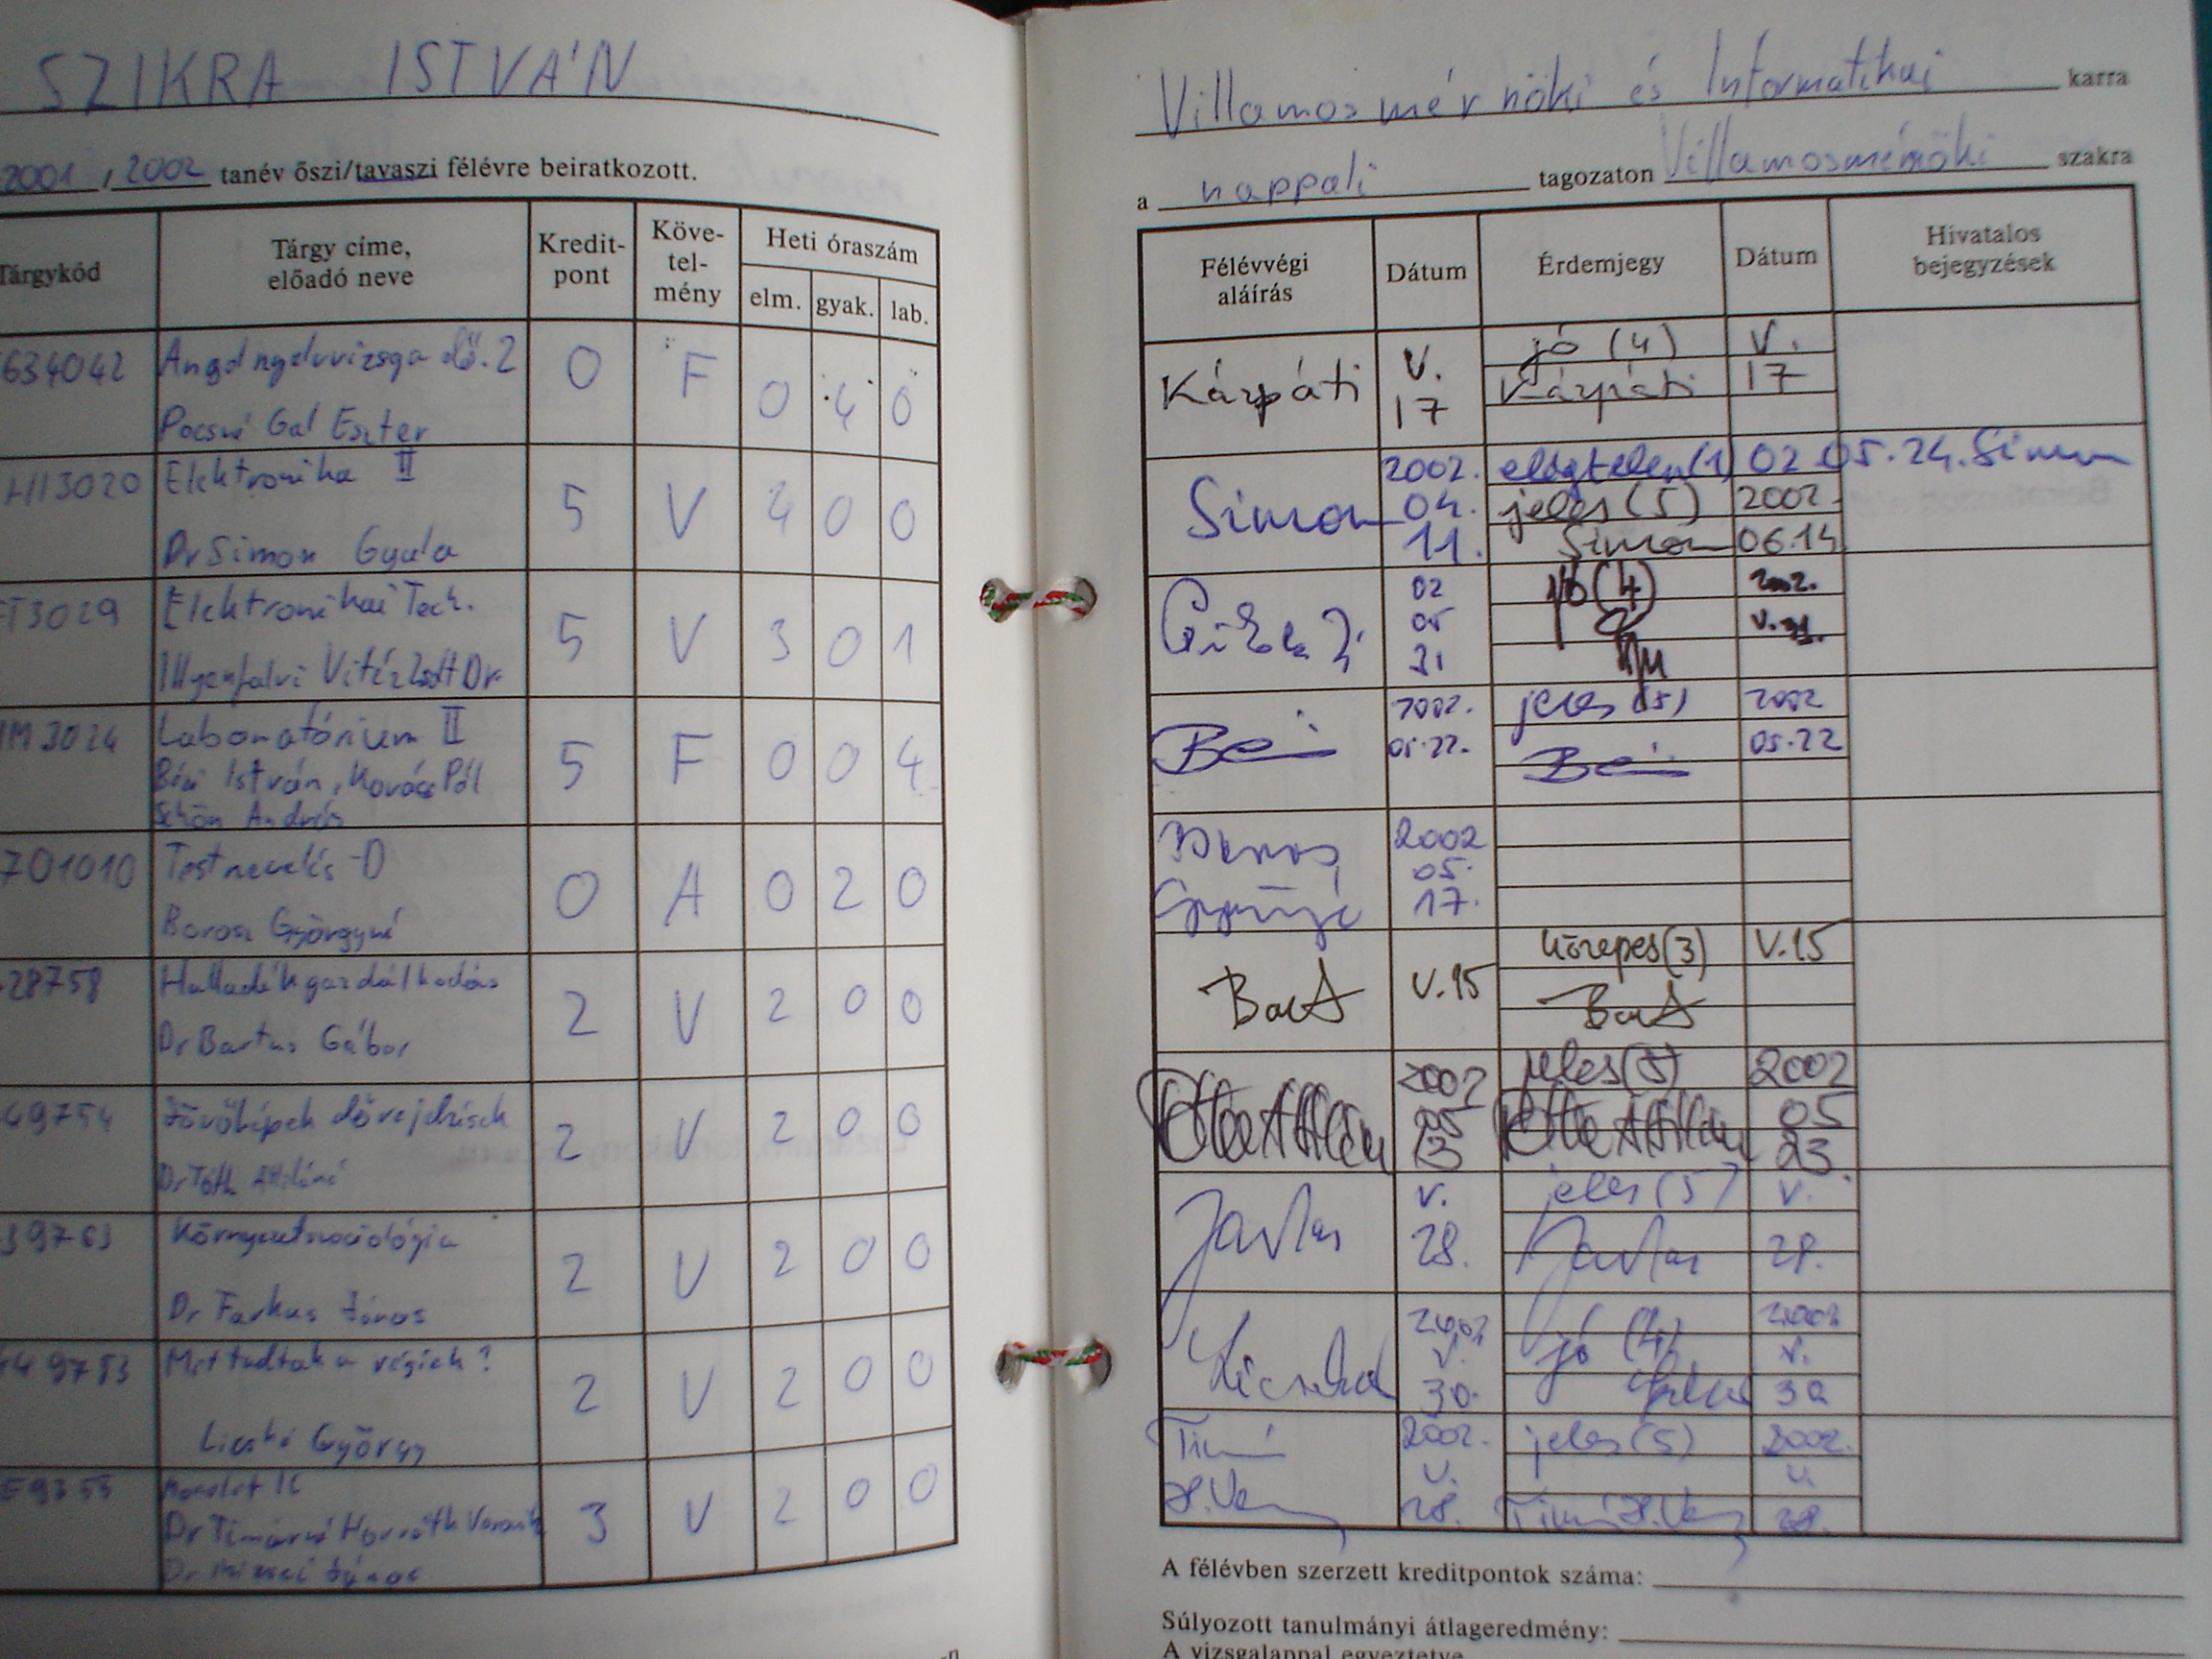 SZIKRA ISTVÁN
2001 / 2002 tanév őszi/tavaszi félévre beiratkozott.
Tárgykód
Tárgy címe,
előadó neve
Kredit-
pont
Köve-
tel-
mény
Heti óraszám
elm. gyak. lab.
634042 Angol nyelvvizsga elő. 2 0 F 0 4 0
Pocsné Gál Eszter
3020 Elektronika II 5 V 4 0 0
Dr Simon Gyula
T3029 Elektronikai Tech. 5 V 3 0 1
Illyefalvi Vitéz Zsolt Dr.
M3024 Laboratórium II 5 F 0 0 4
István, Kovács Pál
Schön András
701010 Testnevelés -D 0 A 0 2 0
Boros Györgyné
28758 Hulladékgazdálkodás 2 V 2 0 0
Dr Bartus Gábor
49754 Jövőképek előrejelzések 2 V 2 0 0
Dr Tóth Attiláné
39763 Környezetszociológia 2 V 2 0 0
Dr Farkas János
49753 Mit tudtak a régiek? 2 V 2 0 0
Licskó György
E9355 Monolit IC 3 V 2 0 0
Dr Timárné Horváth Veronika
Dr Mizsei János
Villamosmérnöki és Informatikai karra
a nappali tagozaton Villamosmérnöki szakra
Félévvégi
aláírás
Dátum
Érdemjegy
Dátum
Hivatalos
bejegyzések
Kárpáti V. 17 jó (4) V. 17
Kárpáti
Simon 2002. 04. 11. elégtelen (1) 02 05. 24. Simon
jeles (5) 2002.
Simon 06.14.
02 05 31 jó (4) 2002. V. 31.
2002. 05.22. jeles (5) 2002 05.22
Boros Györgyné 2002 05. 17.
V.15 közepes (3) V.15
Tóth Attiláné 2002 05 23 jeles (5) 2002 05 23
Tóth Attiláné
Farkas V. 28. jeles (5) V. 28.
Farkas
Licskó 2002 V. 30. jó (4) 2002 V. 30
Timárné H. Ver 2002. V. 28. jeles (5) 2002. V. 28.
Timárné H. Ver
A félévben szerzett kreditpontok száma:
Súlyozott tanulmányi átlageredmény:
A vizsgalappal egyeztetve